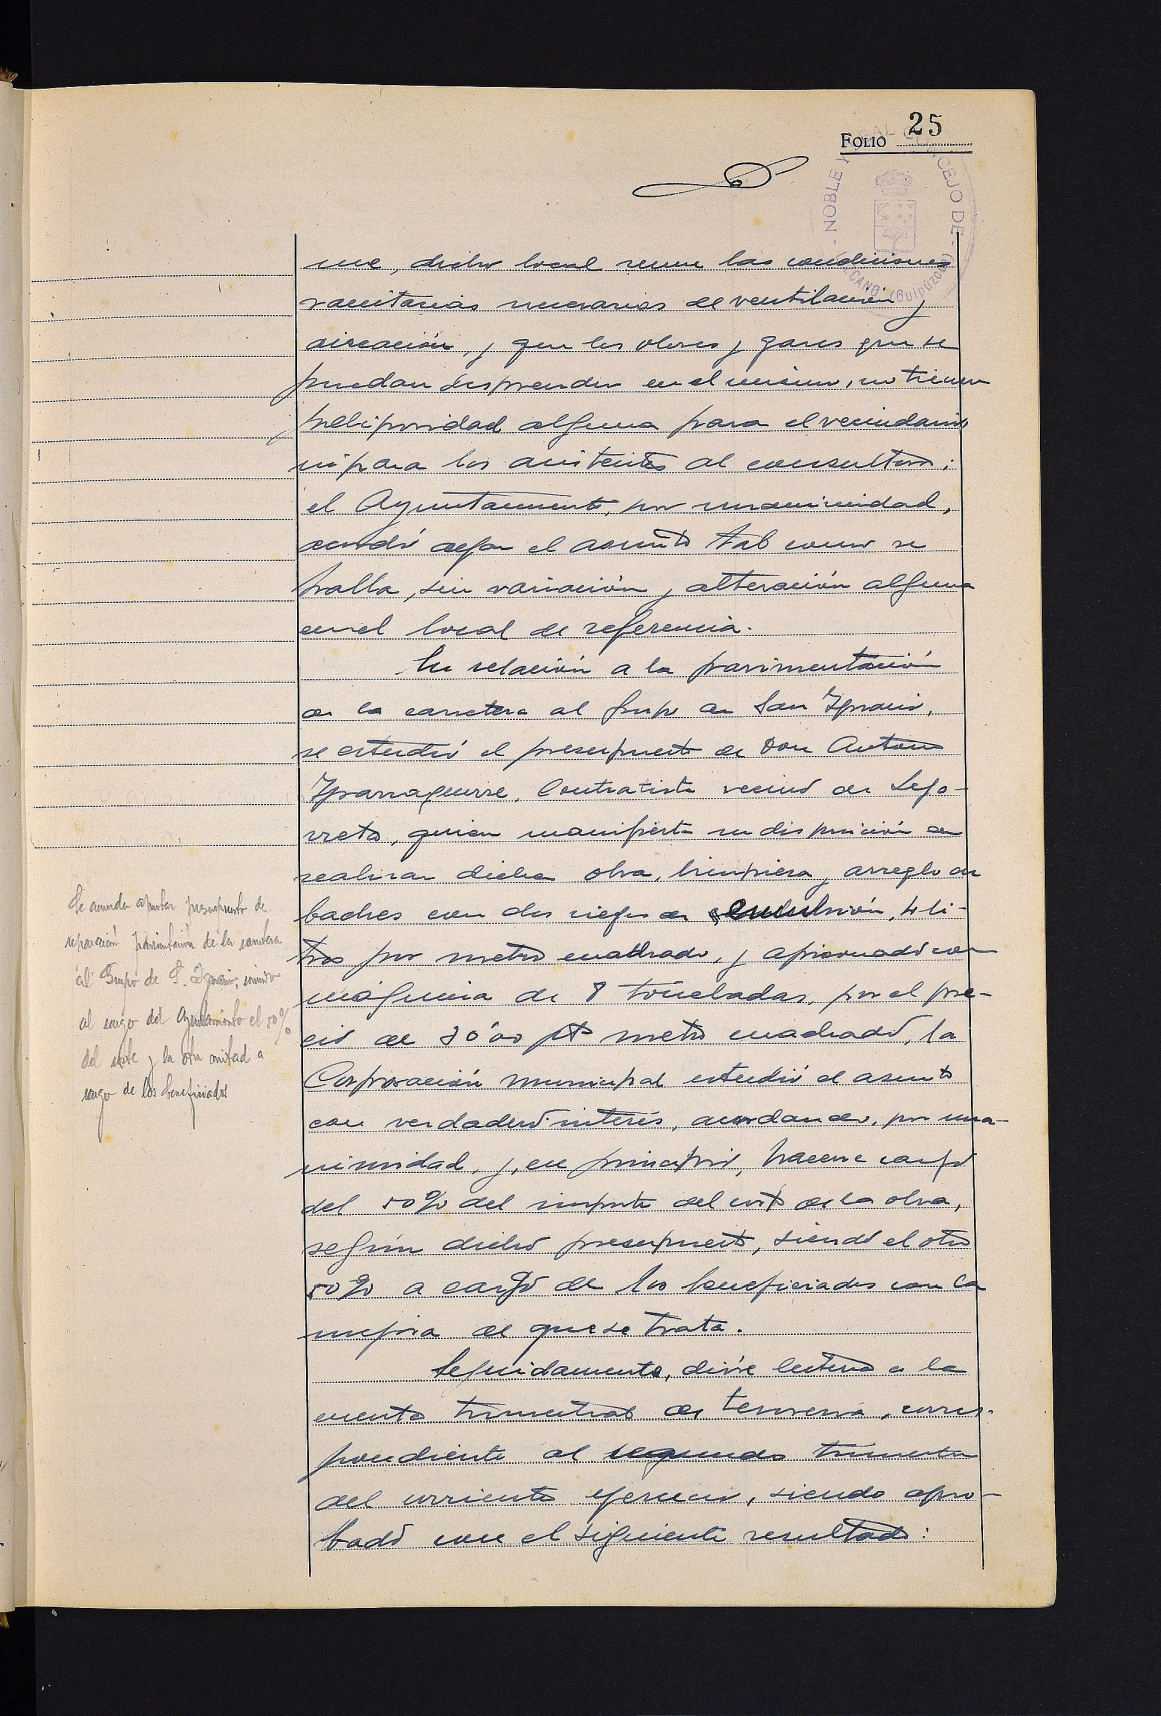 FOLIO 25
NOBLE Y REAL CONCEJO DE
(Guipúzcoa)
me, dicho local reune las condiciones
sanitarias necesarias de ventilación y
aireación, y que los olores y gases que se
puedan desprender en el mismo, no tienen
peligrosidad alguna para el vecindario
ni para los asistentes al consultorio;
el Ayuntamiento, por unanimidad,
acordó dejar el asunto tal como se
halla, sin variación y alteración alguna
en el local de referencia.
En relación a la pavimentación
de la carretera al Grupo de San Ignacio,
se estudió el presupuesto de Don Antonio
Yparraguirre, Contratista vecino de Lego-
rreta, quien manifiesta su disposición de
realizar dicha obra, limpieza y arreglo de
baches con dos riegos de emulsión, 4 li-
tros por metro cuadrado, y apisonado con
máquina de 8 toneladas, por el pre-
cio de 30'00 pts metro cuadrado, la
Corporación municipal estudió el asunto
con verdadero interés, acordando, por una-
nimidad, y, en principio, hacerse cargo
del 50% del importe del costo de la obra,
según dicho presupuesto, siendo el otro
50% a cargo de los beneficiados con la
mejora de que se trata.
Se acuerda aceptar presupuesto de
reparación pavimentación de la carretera
al Grupo de S. Ignacio, siendo
al cargo del Ayuntamiento el 50%
del coste y la otra mitad a
cargo de los beneficiados
Seguidamente, dióse lectura a la
cuenta trimestral de tesorería, corres-
pondiente al segundo trimestre
del corriente ejercicio, siendo apro-
bado con el siguiente resultado: